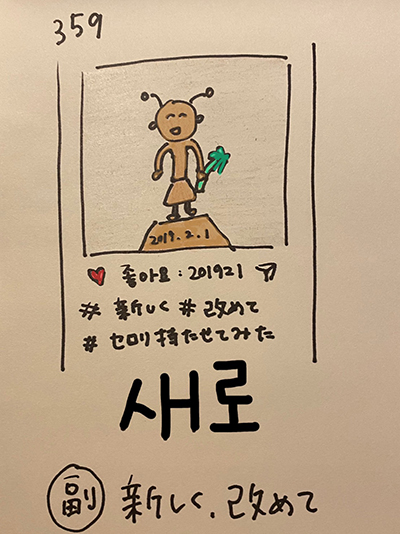 359
2019.2.1
좋아요:201921
#新しく #改めて
#セロリ持たせてみた
새로
副 新しく.改めて